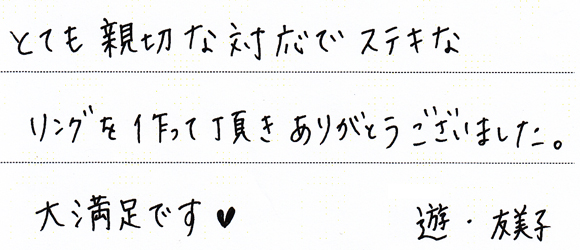 とても親切な対応でステキな
リングを作って頂きありがとうございました。
大満足です♥
遊・友美子